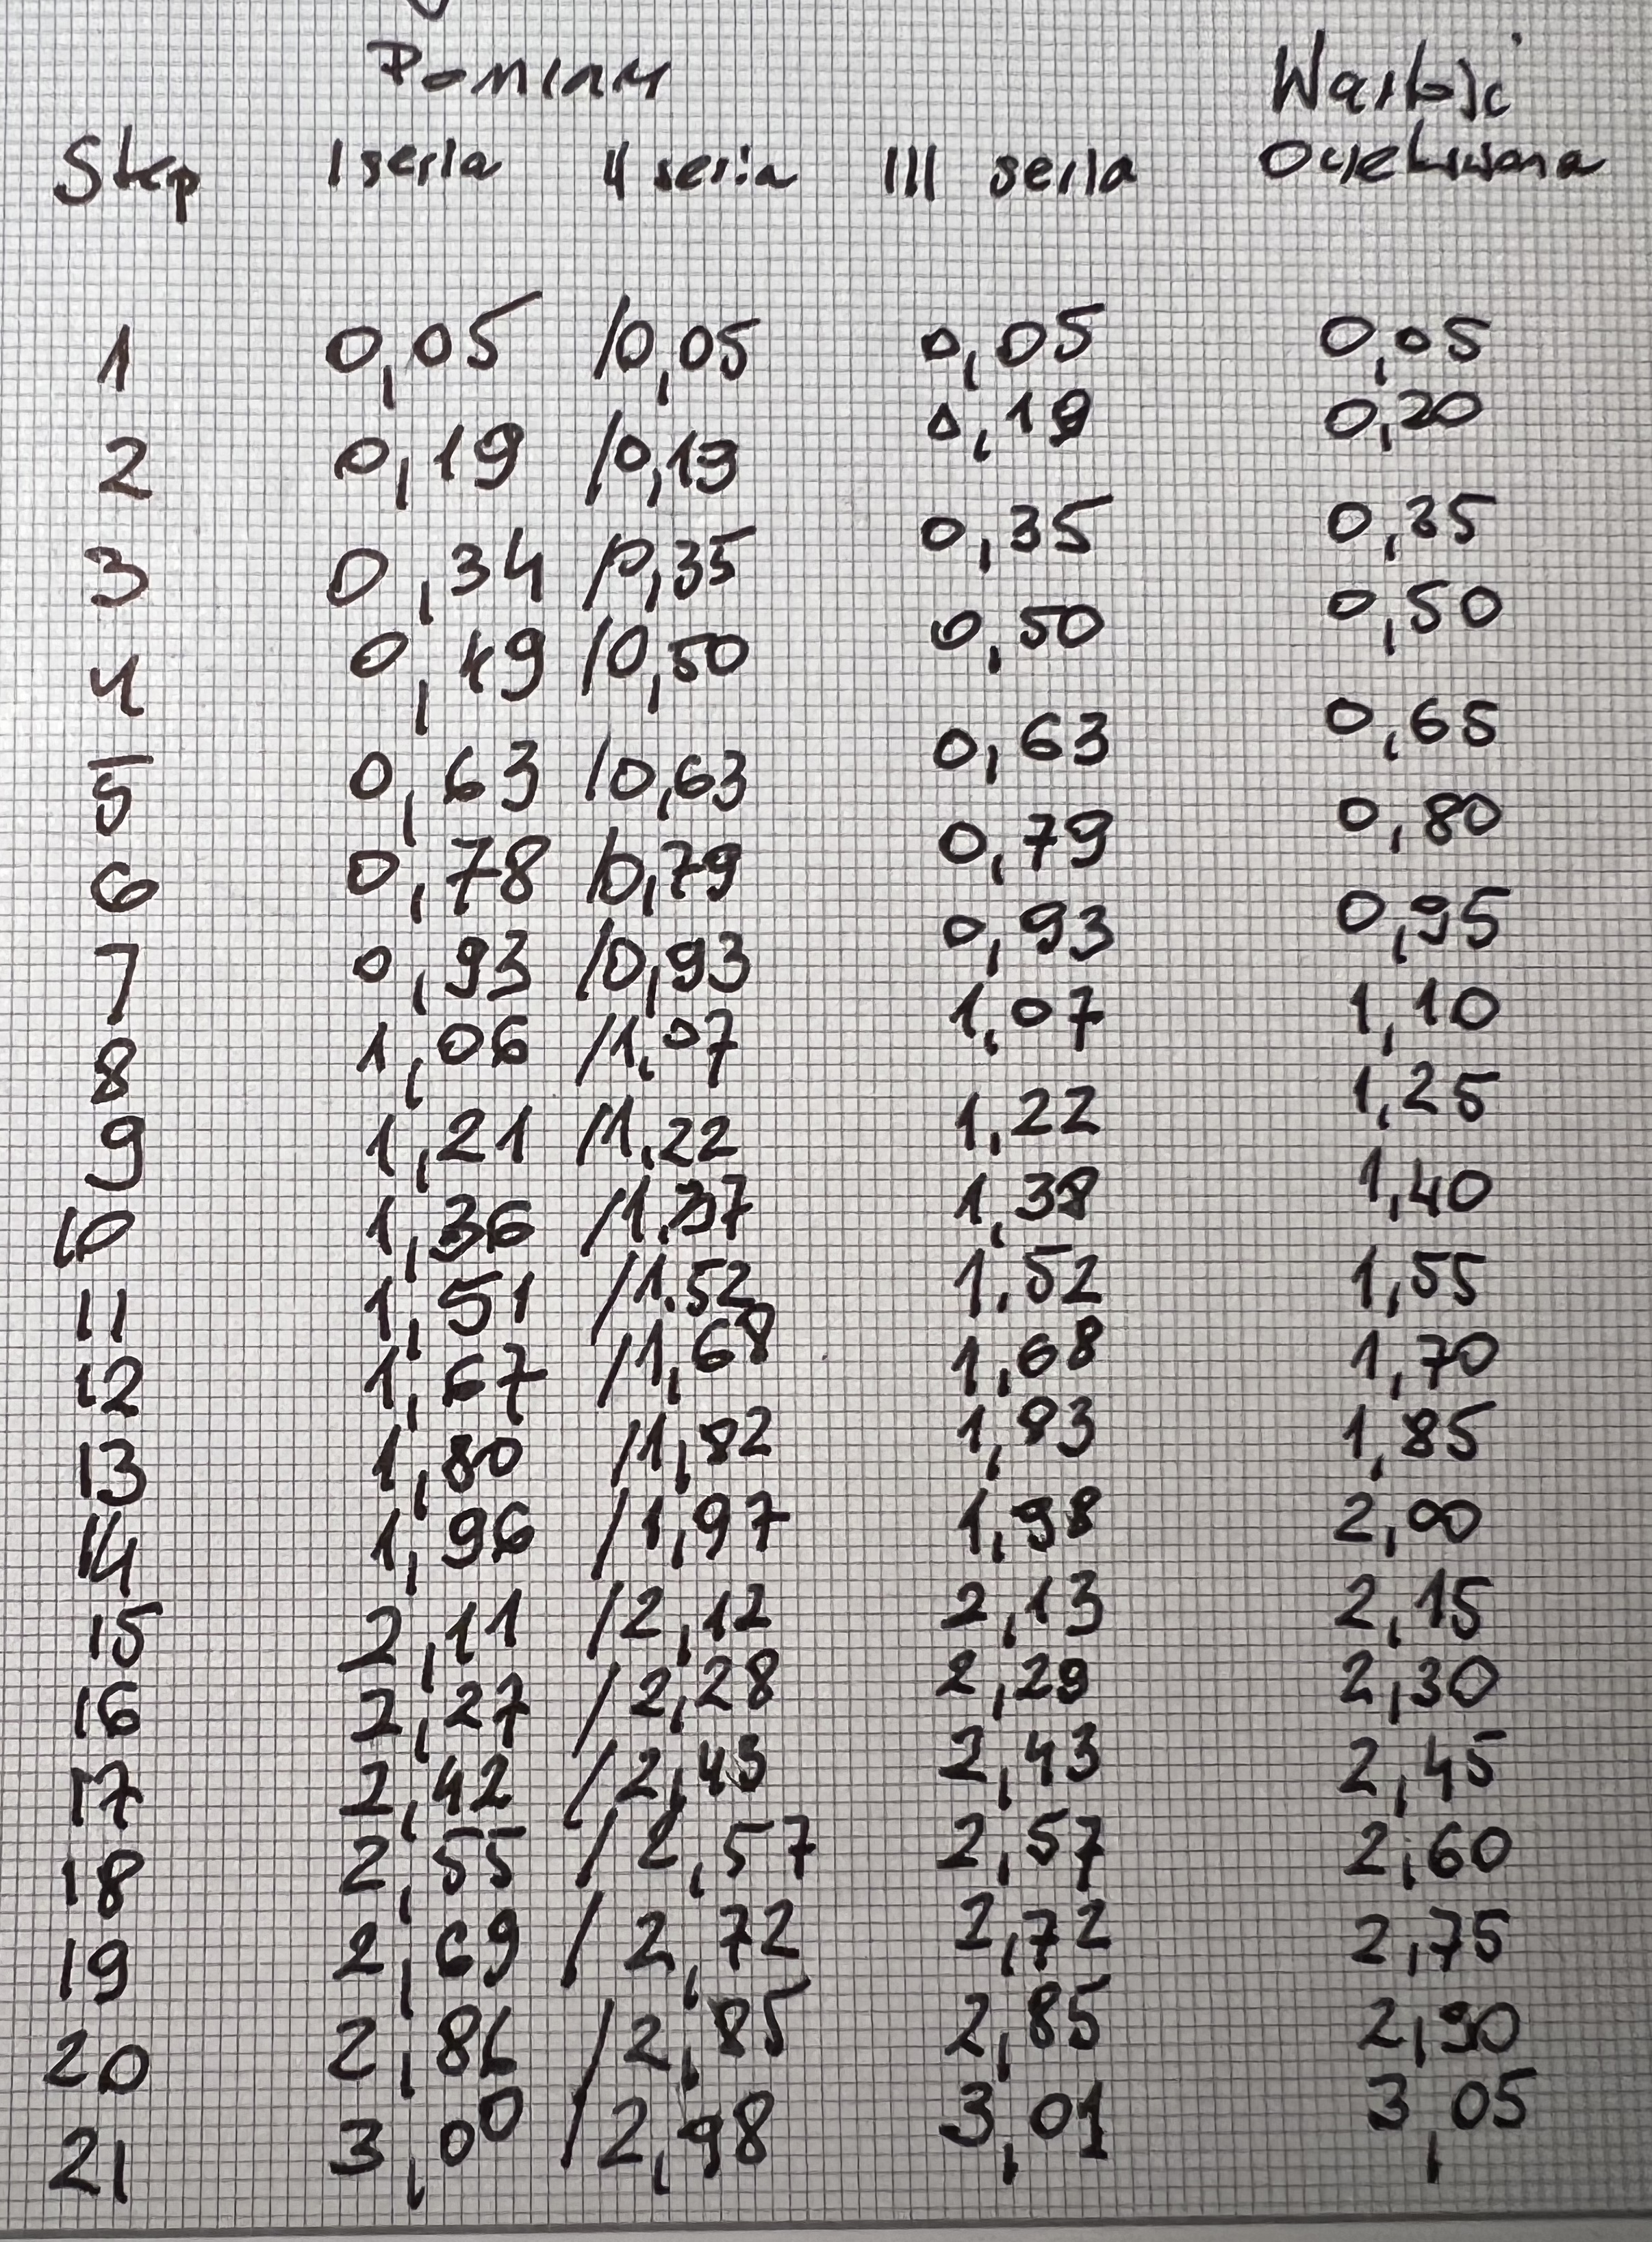 Pomiary Wartość
Step I seria II seria III seria Oczekiwana
1 0,05 /0,05 0,05 0,05
2 0,19 /0,19 0,19 0,20
3 0,34 /0,35 0,35 0,35
4 0,49 /0,50 0,50 0,50
5 0,63 /0,63 0,63 0,65
6 0,78 /0,79 0,79 0,80
7 0,93 /0,93 0,93 0,95
8 1,06 /1,07 1,07 1,10
9 1,21 /1,22 1,22 1,25
10 1,36 /1,37 1,38 1,40
11 1,51 /1.52 1.52 1,55
12 1,67 /1,68 1,68 1,70
13 1,80 /1,82 1,83 1,85
14 1,96 /1,97 1,98 2,00
15 2,11 /2,12 2,13 2,15
16 2,27 /2,28 2,29 2,30
17 2,42 /2,43 2,43 2,45
18 2,55 /2,57 2,57 2,60
19 2,69 /2,72 2,72 2,75
20 2,86 /2,85 2,85 2,90
21 3,00 /2,98 3,01 3,05